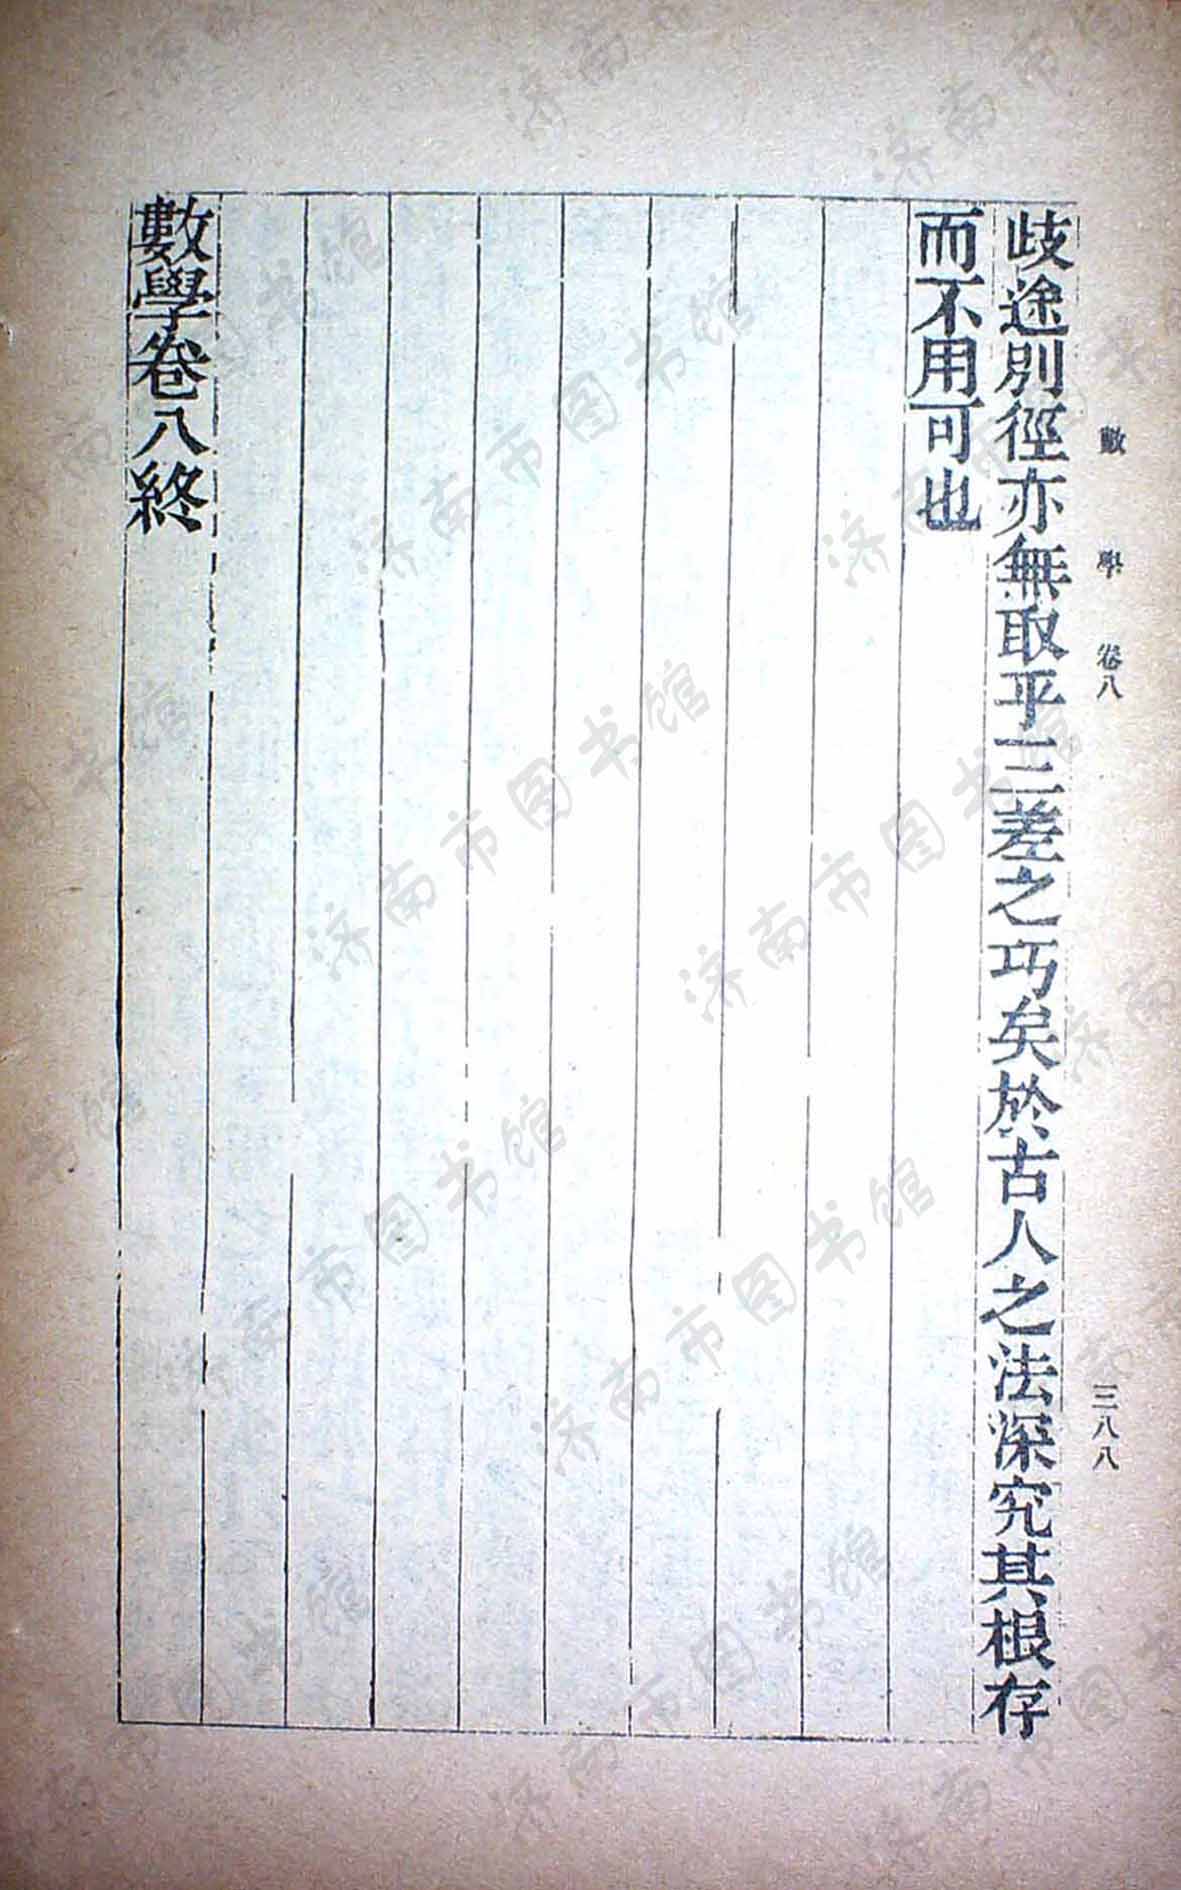 數學 卷八 三八八
歧途別徑亦無取乎三差之巧矣於古人之法深究其根存
而不用可也
數學卷八終
济南市图书馆